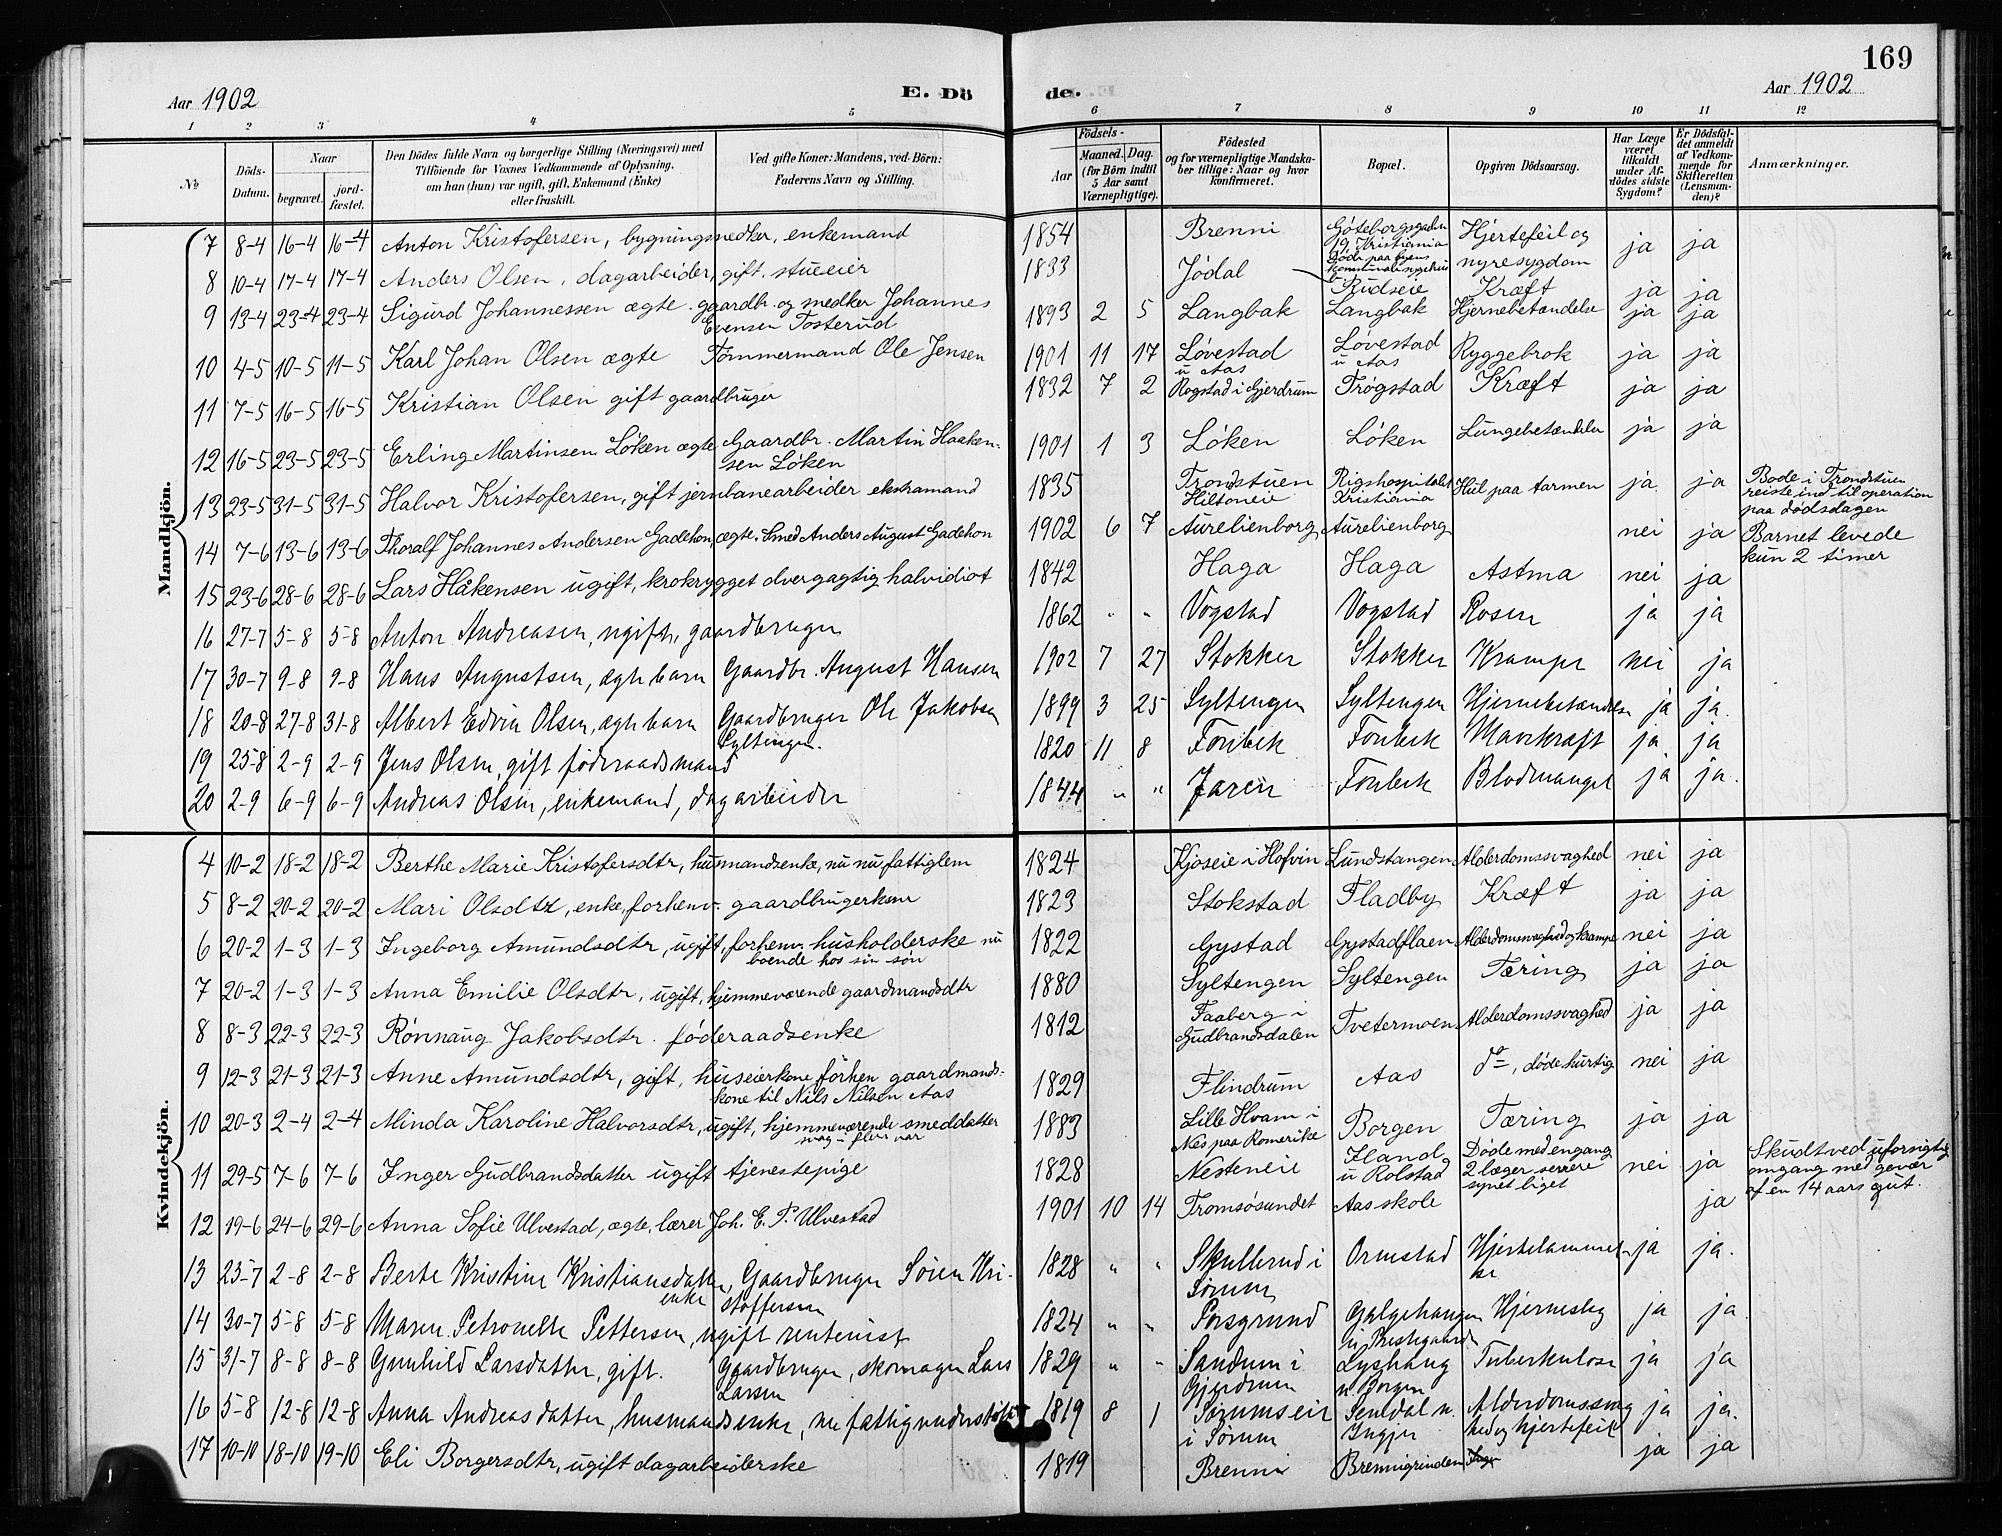 169
Aar 1902 E. Dö de. Aar 1902
1 2 3 4 5 6 7 8 9 10 11 12
№ Döds-Datum. Naar begravet. jordfæstet. Den Dödes fulde Navn og borgerlige Stilling (Næringsvei) med Tilföiende for Voxnes Vedkommende af Oplysning, om han (hun) var ugift, gift, Enkemand (Enke) eller fraskilt. Ved gifte Koner: Mandens, ved Börn: Faderens Navn og Stilling. Födsels- Aar Maaned. Dag. (for Börn indtil 5 Aar samt Værnepligtige). Födested og for værnepligtige Mandskaber tillige: Naar og hvor konfirmeret. Bopæl. Opgiven Dödsaarsag. Har Læge været tilkaldt under Afdödes sidste Sygdom? Er Dödsfaldet anmeldt af Vedkommende for Skifteretten (Lensmanden)? Anmærkninger.
Mandkjön.
7 8-4 16-4 16-4 Anton Kristofersen, bygningssnedker, enkemand 1854 Brenni Göteborgsgaden 19, Kristiania Døde paa byens kommunale sygehus Hjertefeil og nyresygdom ja ja
8 10-4 17-4 17-4 Anders Olsen, dagarbeider, gift, stueeier 1833 Jødal Rudseie Kræft ja ja
9 13-4 23-4 23-4 Sigurd Johannessen ægte gaardbr. og snedker Johannes Evensen Tosterud 1893 2 5 Langbak Langbak Hjernebetændelse ja ja
10 4-5 10-5 11-5 Karl Johan Olsen ægte Tømmermand Ole Jensen 1901 11 17 Løvestad u Aas Løvestad u Aas Ryggebrok ja ja
11 7-5 16-5 16-5 Kristian Olsen gift gaardbruger 1832 7 2 Rogstad i Gjerdrum Trøgstad Kræft ja ja
12 16-5 23-5 23-5 Erling Martinsen Løken ægte Gaardbr. Martin Haakensen Løken 1901 1 3 Løken Løken Lungebetændelse ja ja
13 23-5 31-5 31-5 Halvor Kristofersen, gift jernbanearbeider ekstramand 1835 Trondstuen Hiltoneie Rigshospitalet Kristiania Hul paa tarmen ja ja Bode i Trondstuen reiste ind til operation paa dødsdagen
14 7-6 13-6 13-6 Thoralf Johannes Andersen Gadehon, ægte, Smed Anders August Gadehon 1902 6 7 Aurelienborg Aurelienborg nei ja Barnet levede kun 2 timer
15 23-6 28-6 28-6 Lars Håkensen ugift, krokrygget dvergagtig halvidiot 1842 Haga Haga Astma nei ja
16 27-7 5-8 5-8 Anton Andreasen, ugift, gaardbruger 1862 " " Vogstad Vogstad Rosen ja ja
17 30-7 9-8 9-8 Hans Augustsen, ægte barn Gaardbr. August Hansen 1902 7 27 Stokker Stokker Krampe nei ja
18 20-8 27-8 31-8 Albert Edvin Olsen, ægte barn Gaardbruger Ole Jakobsen Syltengen. 1899 3 25 Syltengen Syltengen Hjernebetændelse ja ja.
19 25-8 2-9 2-9 Jens Olsen, gift føderaadsmand 1820 11 8 Fonbek Fonbek Mavekræft ja ja
20 2-9 6-9 6-9 Andreas Olsen, enkemand, dagarbeider 1844 " " Jaren Fonbek Blodmangel ja ja.
Kvindekjön.
4 10-2 18-2 18-2 Berthe Marie Kristofersdtr, husmandsenke, nu nu fattiglem 1824 Kjoseie i Hofvin Lundstangen Alderdomssvaghed nei ja
5 8-2 20-2 20-2 Mari Olsdtr, enke, forhenv. gaardbrugerkone 1823 Stokstad Fladby Kræft ja ja
6 20-2 1-3 1-3 Ingeborg Amundsdtr, ugift, forhenv. husholderske nu boende hos sin søn 1822 Gystad Gystadflaen Alderdomsvaghed og krampe nei ja
7 20-2 1-3 1-3 Anna Emilie Olsdtr, ugift, hjemmeværende gaardmandsdtr 1880 Syltengen Syltengen Tæring ja ja
8 8-3 22-3 22-3 Rønnaug Jakobsdtr. føderaadsenke 1812 Faaberg i Gudbrandsdalen Tvetermoen Alderdomssvaghed ja ja
9 12-3 21-3 21-3 Anne Amundsdtr, gift, huseierkone forhen gaardmandskone til Nils Nilsen Aas 1829 Flindrum Aas do, døde hurtig nei ja
10 20-3 2-4 2-4 Minda Karoline Halvorsdtr, ugift, hjemmeværende smeddatter 1883 Lille Hvam i Nes paa Romerike Borgen Tæring ja ja
11 29-5 7-6 7-6 Inger Gudbrandsdatter ugift tjenestepige 1828 Nesteneie Haand u Rolstad Døde med engang 2 læger senere synet liget nei ja Skudt ved uforsigtig omgang med gevær af en 14 aars gut.
12 19-6 24-6 29-6 Anna Sofie Ulvestad, ægte, lærer Joh. E. P. Ulvestad 1901 10 14 Tromsøsundet Aas skole ja
13 23-7 2-8 2-8 Berte Kristine Kristiansdatter, enke Gaardbruger Søren Kristoffersen 1828 " " Skullerud i Sørum Ormstad Hjertelammelse ja ja.
14 30-7 5-8 5-8 Maren Petronelle Pettersen, ugift rentenist 1824 " " Porsgrund Galgehaugen u/ Prestegaarden Hjerneslag ja ja.
15 31-7 8-8 8-8 Gunhild Larsdatter, gift. Gaardbruger, skomager Lars Larsen 1829 " " Sandum i Gjerdrum Lyshaug u. Borgen Tuberkulose ja ja
16 5-8 12-8 12-8 Anna Andreasdatter, husmandsenke, nu fattigunderstøttet 1819 8 1 Sørumseie i Sørum u. Alderdomssvaghed og hjertefeil ja ja.
17 10-10 18-10 19-10 Eli Borgersdtr, ugift dagarbeiderske 1819 Brenni Brennigrinden ja ja